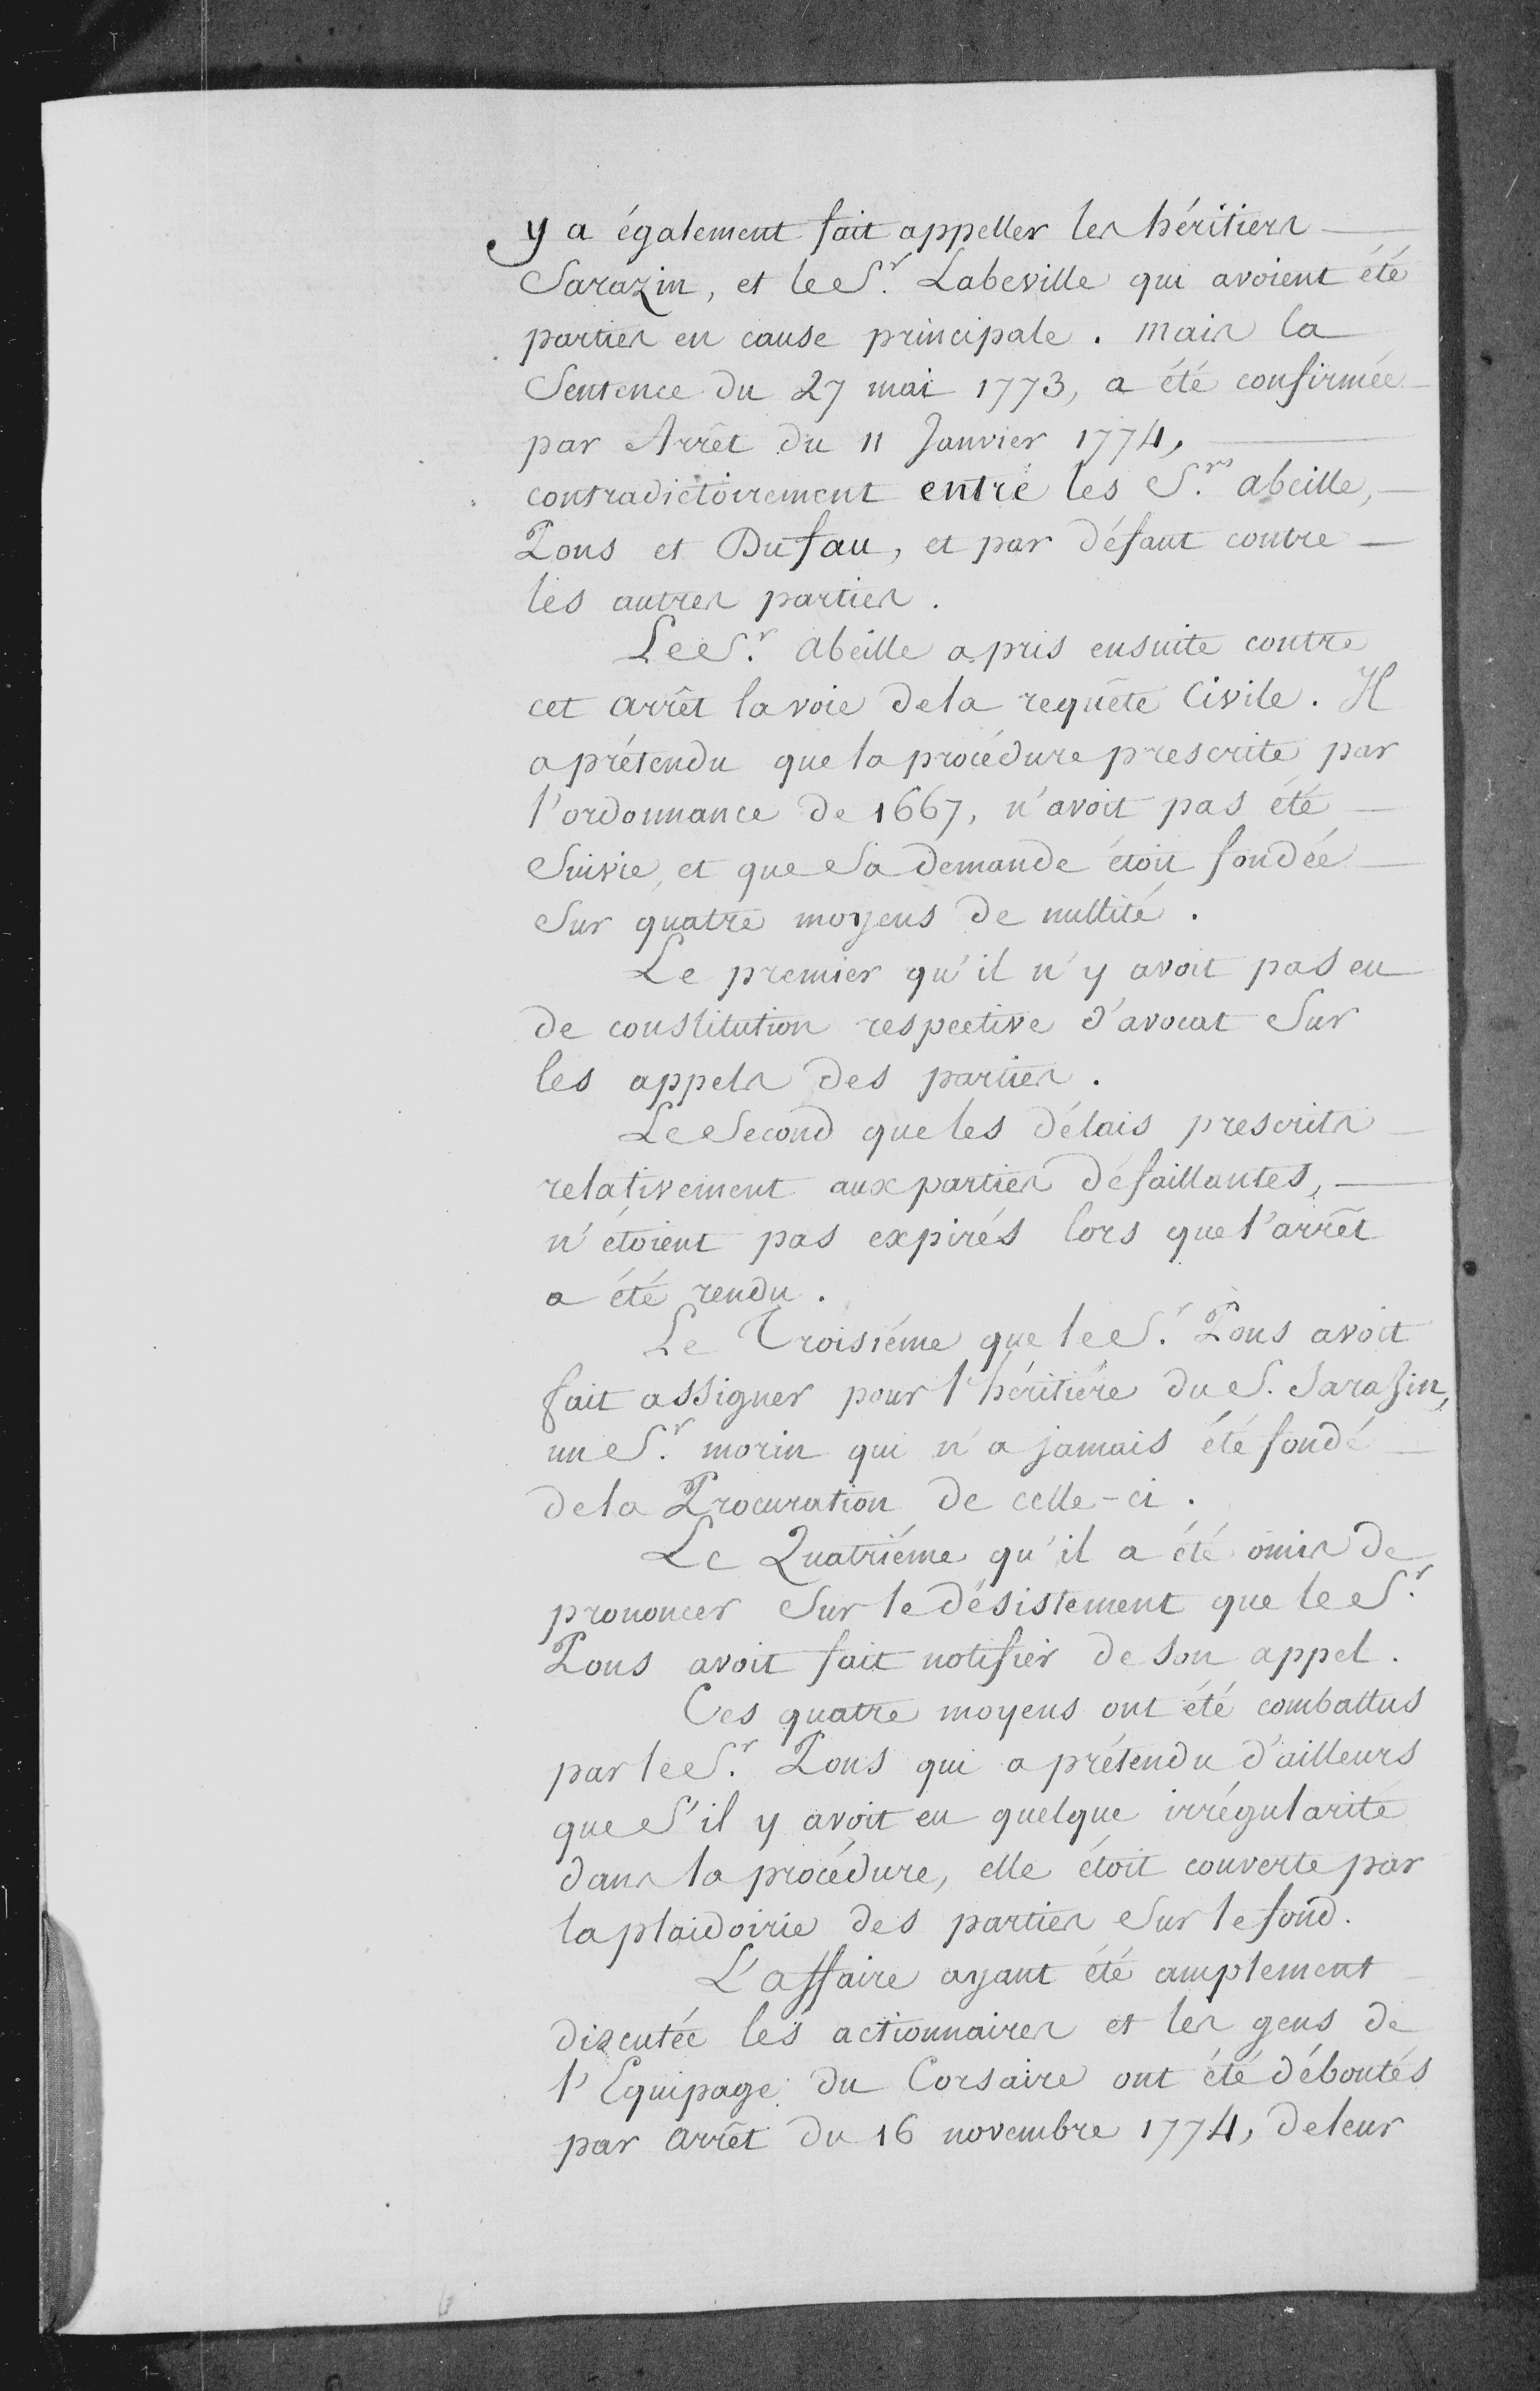 y a également fait appeller les héritiers
Sarazin, et le Sr. Labeville qui avoient été
parties en cause principale. mais la
Sentence du 27 mai 1773, a été confirmée
par Arrêt du 11 Janvier 1774,
contradictoirement entre les Srs. abeille,
Pons et Dufau, et par défaut contre
les autres parties.
Le Sr. abeille a pris ensuite contre
cet arrêt la voie de la requête Civile. Il
a prétendu que la procédure prescrite par
l'ordonnance de 1667, n'avoit pas été
Suivie, et que Sa demande étoit fondée
Sur quatre moyens de nullité.
Le premier qu'il n'y avoit pas eu
de constitution respective d'avocat Sur
les appels des parties.
Le Second que les délais prescrits
relativement aux parties défaillantes,
n'étoient pas expirés lors que l'arrêt
a été rendu.
Le Troisiéme que le Sr. Pons avoit
fait assigner pour l'héritière du S. Sarasin,
un Sr. morin qui n'a jamais été fondé
de la Procuration de celle-ci.
Le Quatriéme qu'il a été omis de
prononcer Sur le désistement que le Sr.
Pons avoit fait notifier de son appel.
Ces quatre moyens ont été combattus
par le Sr. Pons qui a prétendu d'ailleurs
que S'il y avoit eu quelque irrégularité
dans la procédure, elle étoit couverte par
la plaidoirie des parties Sur le fond.
L'affaire ayant été amplement
discutée les actionnaires et les gens de
l'Equipage du Corsaire ont été déboutés
par arrêt du 16 novembre 1774, de leur